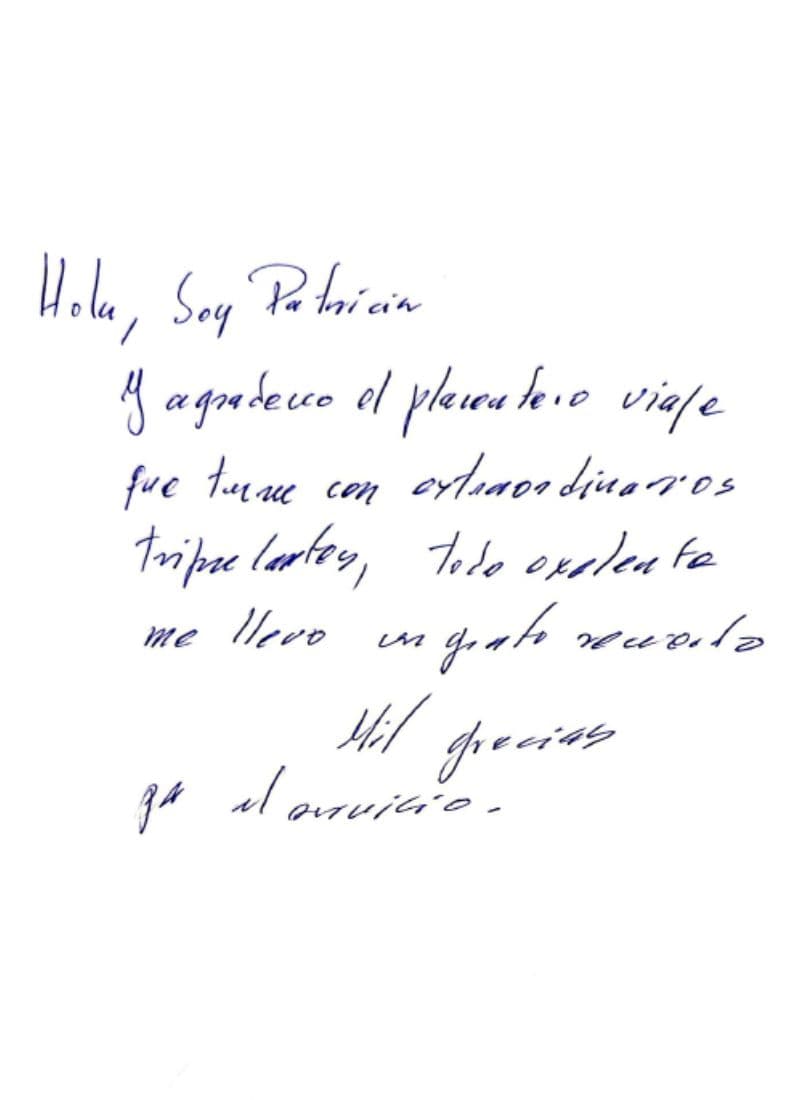 Hola, Soy Patricia
Y agradezco el placentero viaje
que tuve con extraordinarios
tripulantes, todo exelente
me llevo un grato recuerdo
Mil gracias
el servicio.